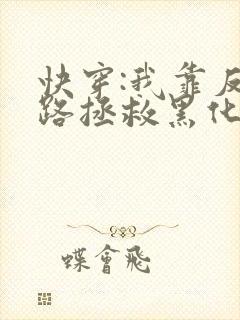 快穿:我靠反
路拯救黑化
蝶會飛